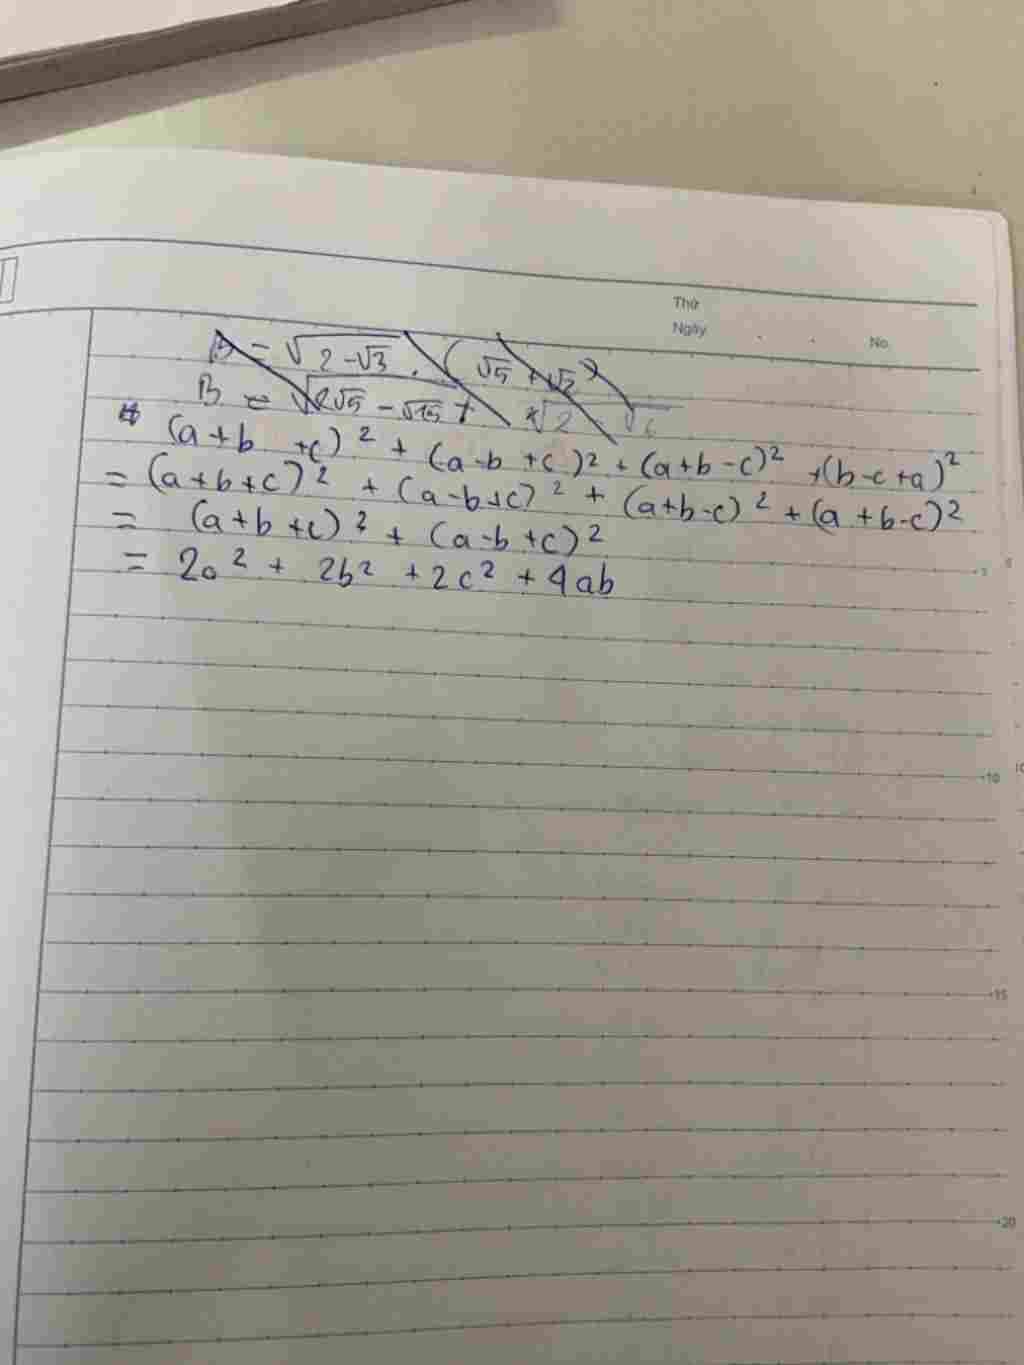 Thứ
Ngày
No.
B = √2-√3 . (√5 + √2)
B = √2√5 - √15 +
(a+b +c)² + (a-b +c)² + (a+b-c)² + (b-c+a)²
= (a+b+c)² + (a-b+c)² + (a+b-c)² + (a+b-c)²
= (a+b+c)² + (a-b+c)²
= 2a² + 2b² + 2c² + 4ab
5
10
15
20